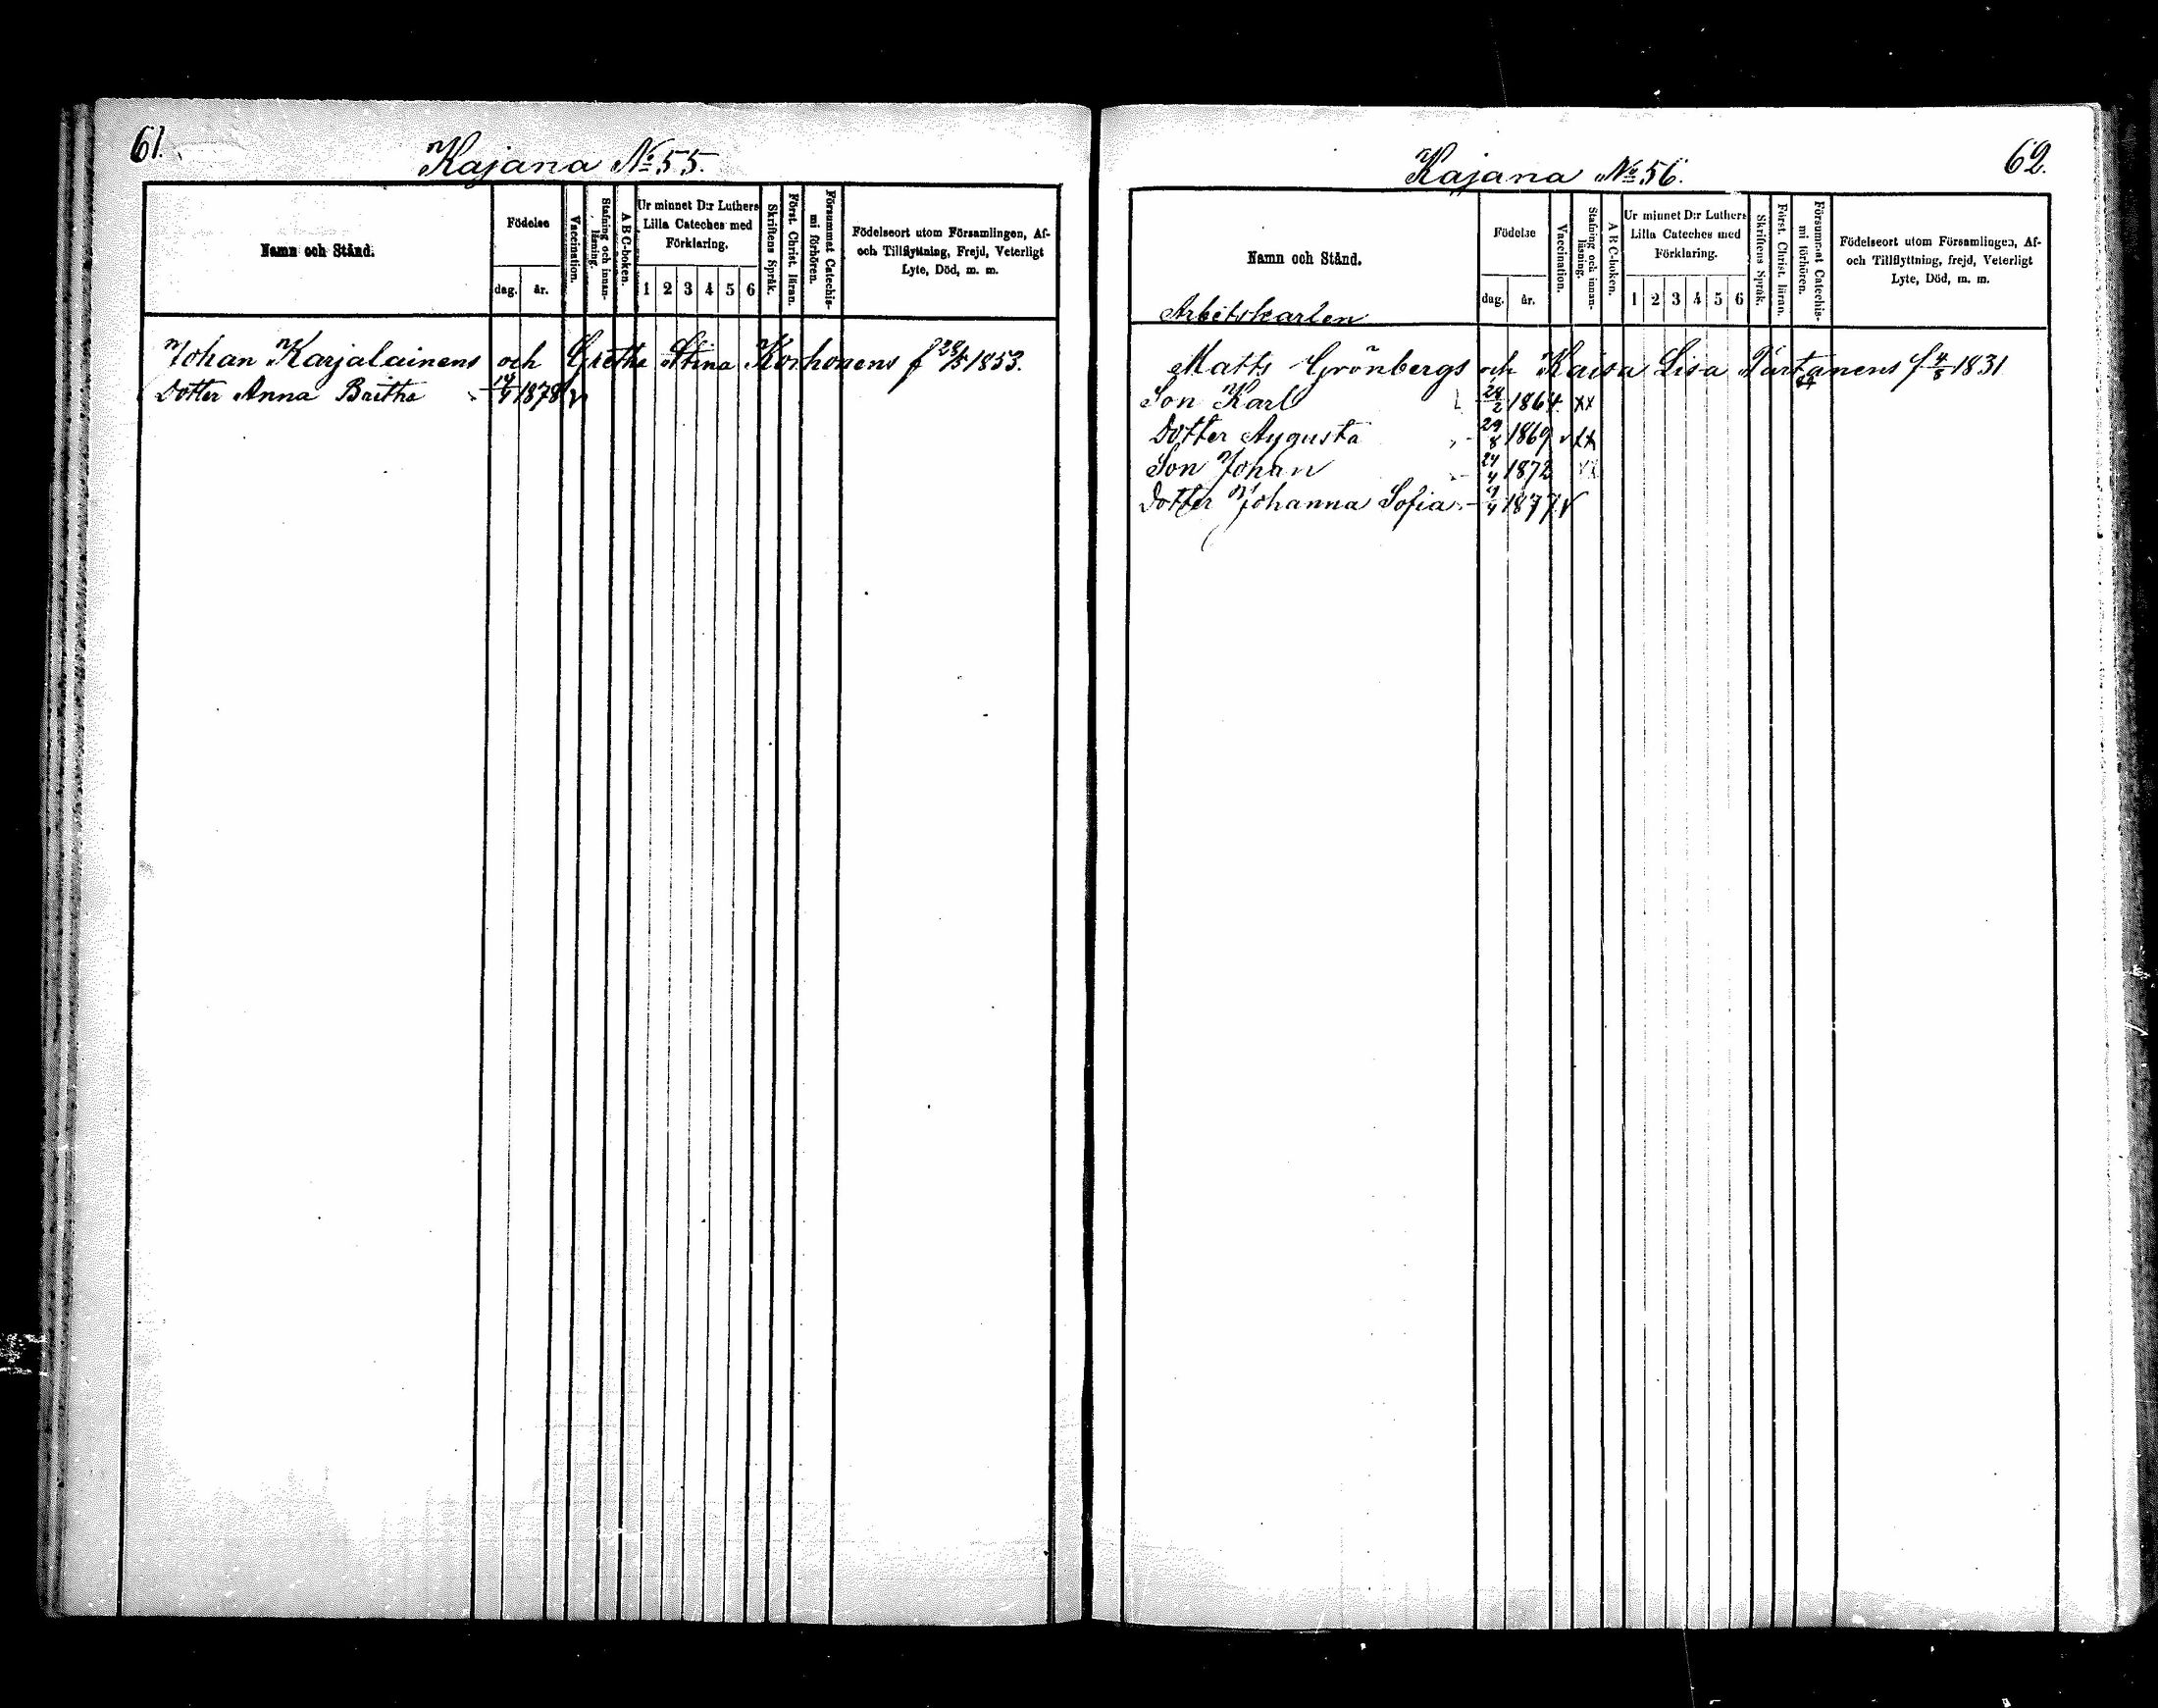 61.
Kajana № 55.
Namn och Stånd.
Födelse
dag.
år.
Vaccination.
Stafning och innan-
läsning.
ABC-boken.
Ur minnet D:r Luthers
Lilla Cateches med
Förklaring.
1 2 3 4 5 6
Skriftens Språk.
Först. Christ. läran.
Försummat Catechis-
mi förhören.
Födelseort utom Församlingen, Af-
och Tillflyttning, Frejd, Veterligt
Lyte, Död, m. m.
Johan Karjalainens och Gretha Stina Korhonens f 28/5 1853.
Dotter Anna Britha 14/4 1878 v
62.
Kajana № 56.
Namn och Stånd.
Födelse
dag.
år.
Vaccination.
Stafning och innan-
läsning.
ABC-boken.
Ur minnet D:r Luthers
Lilla Cateches med
Förklaring.
1 2 3 4 5 6
Skriftens Språk.
Först. Christ. läran.
Försummat Catechis-
mi förhören.
Födelseort utom Församlingen, Af-
och Tillflyttning, frejd, Veterligt
Lyte, Död, m. m.
Arbetskarlen
Matts Grönbergs och Kaisa Lisa Partanens f 4/8 1831
Son Karl 28/2 1864 xx
Dotter Augusta 29/8 1869 v xx
Son Johan 24/4 1872
Dotter Johanna Sofia 4/4 1877 v